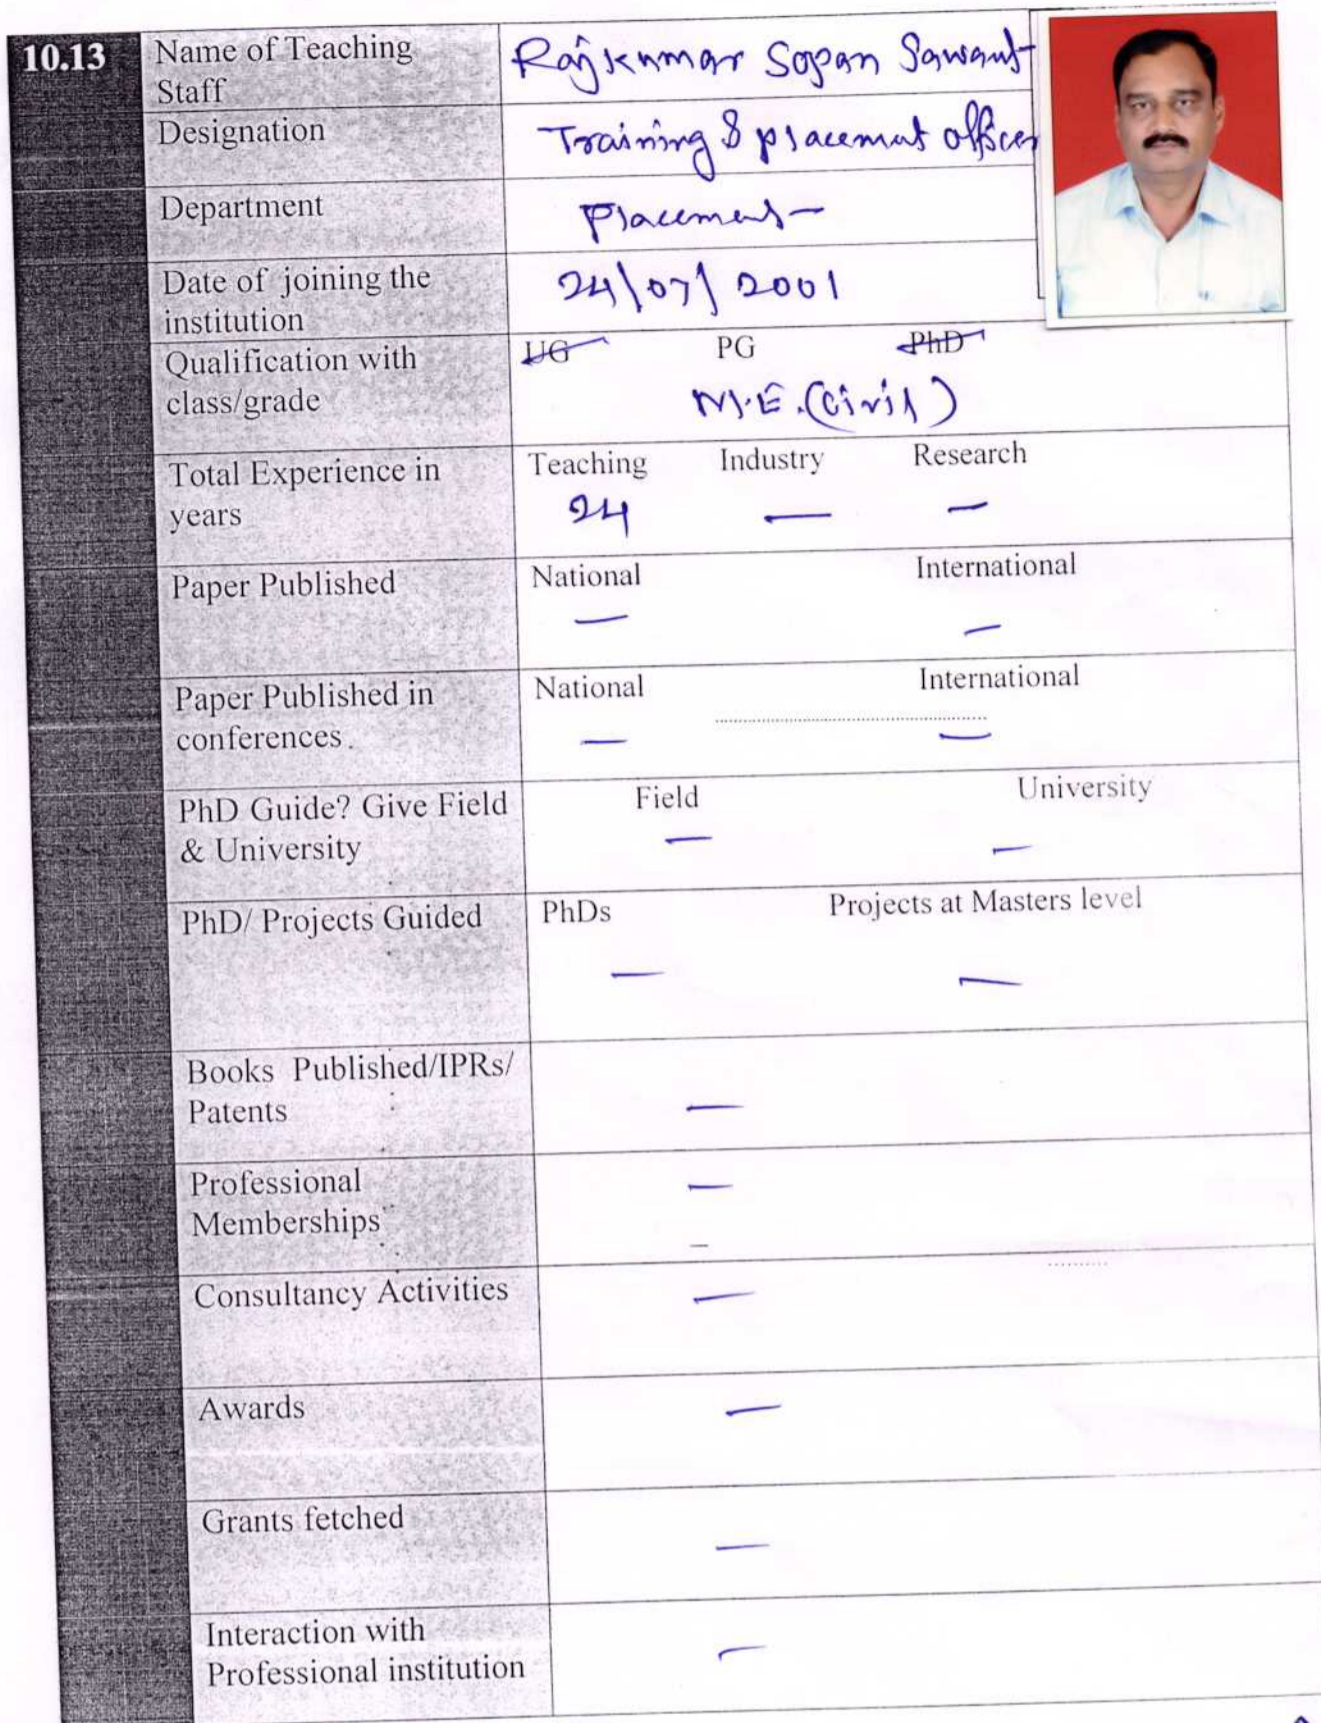 10.13 Name of Teaching Rajkumar Sopan Sawant
Staff
Designation Training & placement officer
Department Placement
Date of joining the 24/07/2001
institution
Qualification with UG PG PhD
class/grade M.E. (Civil)
Total Experience in Teaching Industry Research
years 24 — —
Paper Published National International
— —
Paper Published in National International
conferences. — —
PhD Guide? Give Field Field University
& University — —
PhD/ Projects Guided PhDs Projects at Masters level
— —
Books Published/IPRs/
Patents —
Professional —
Memberships
Consultancy Activities —
Awards —
Grants fetched —
Interaction with —
Professional institution